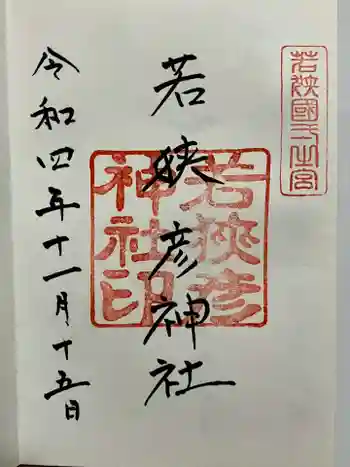 若狭國一之宮
若狭彦神社
若狭彦神社印
令和四年十一月十五日